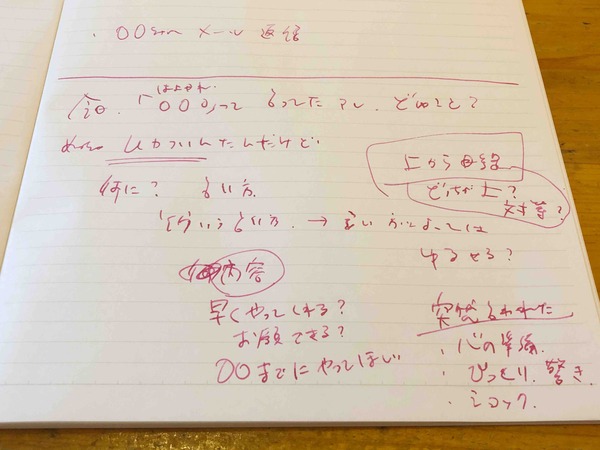 ・〇〇さんへ メール 返信
はよやれ
今日、「〇〇〇」って 言ってた アレ、どいうこと?
めっちゃ ムカついたんだけど
何に? 言い方
上から目線
どっちが上?
対等?
どういう言い方 → 言い方によっては
ゆるせる?
内容
早くやってくれる?
お願できる?
〇〇までにやってほしい
突然言われた
・心の準備
・びっくり、驚き
・ショック